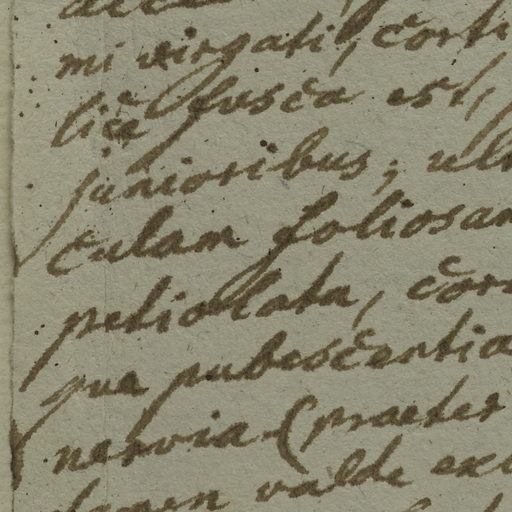 mi virgati, corti
lica fusca est,
junioribus; ul
culam foliosam
petiolata, cor
que pubescentia
nervia (praeter
tamen valde ex